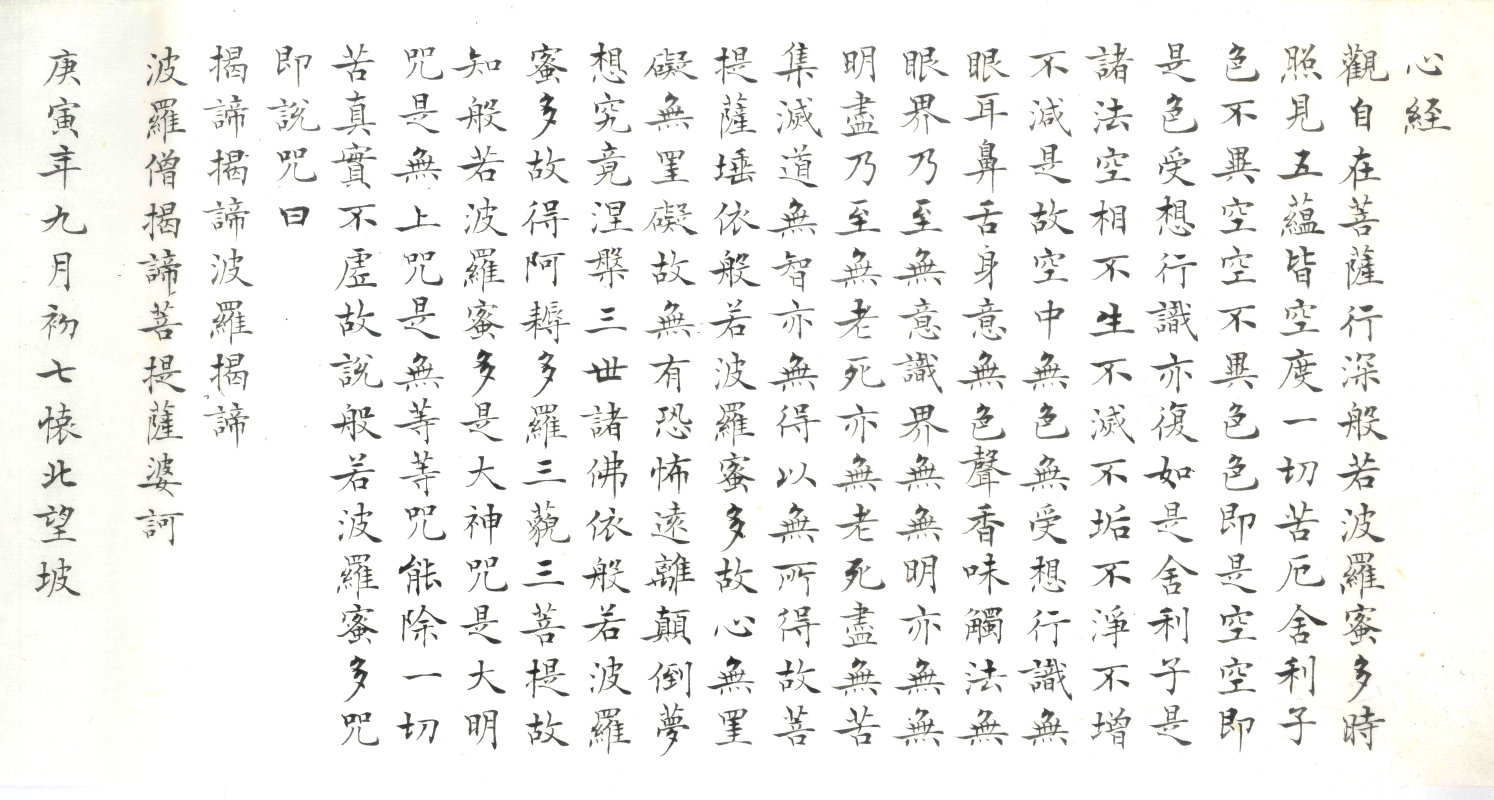 心経
觀自在菩薩行深般若波羅蜜多時
照見五蘊皆空度一切苦厄舍利子
色不異空空不異色色即是空空即
是色受想行識亦復如是舍利子是
諸法空相不生不滅不垢不淨不增
不減是故空中無色無受想行識無
眼耳鼻舌身意無色聲香味觸法無
眼界乃至無意識界無無明亦無無
明盡乃至無老死亦無老死盡無苦
集滅道無智亦無得以無所得故菩
提薩埵依般若波羅蜜多故心無罣
礙無罣礙故無有恐怖遠離顛倒夢
想究竟涅槃三世諸佛依般若波羅
蜜多故得阿耨多羅三藐三菩提故
知般若波羅蜜多是大神咒是大明
咒是無上咒是無等等咒能除一切
苦真實不虛故說般若波羅蜜多咒
即說咒曰
揭諦揭諦波羅揭諦
波羅僧揭諦菩提薩婆訶
庚寅年九月初七懷北望坡